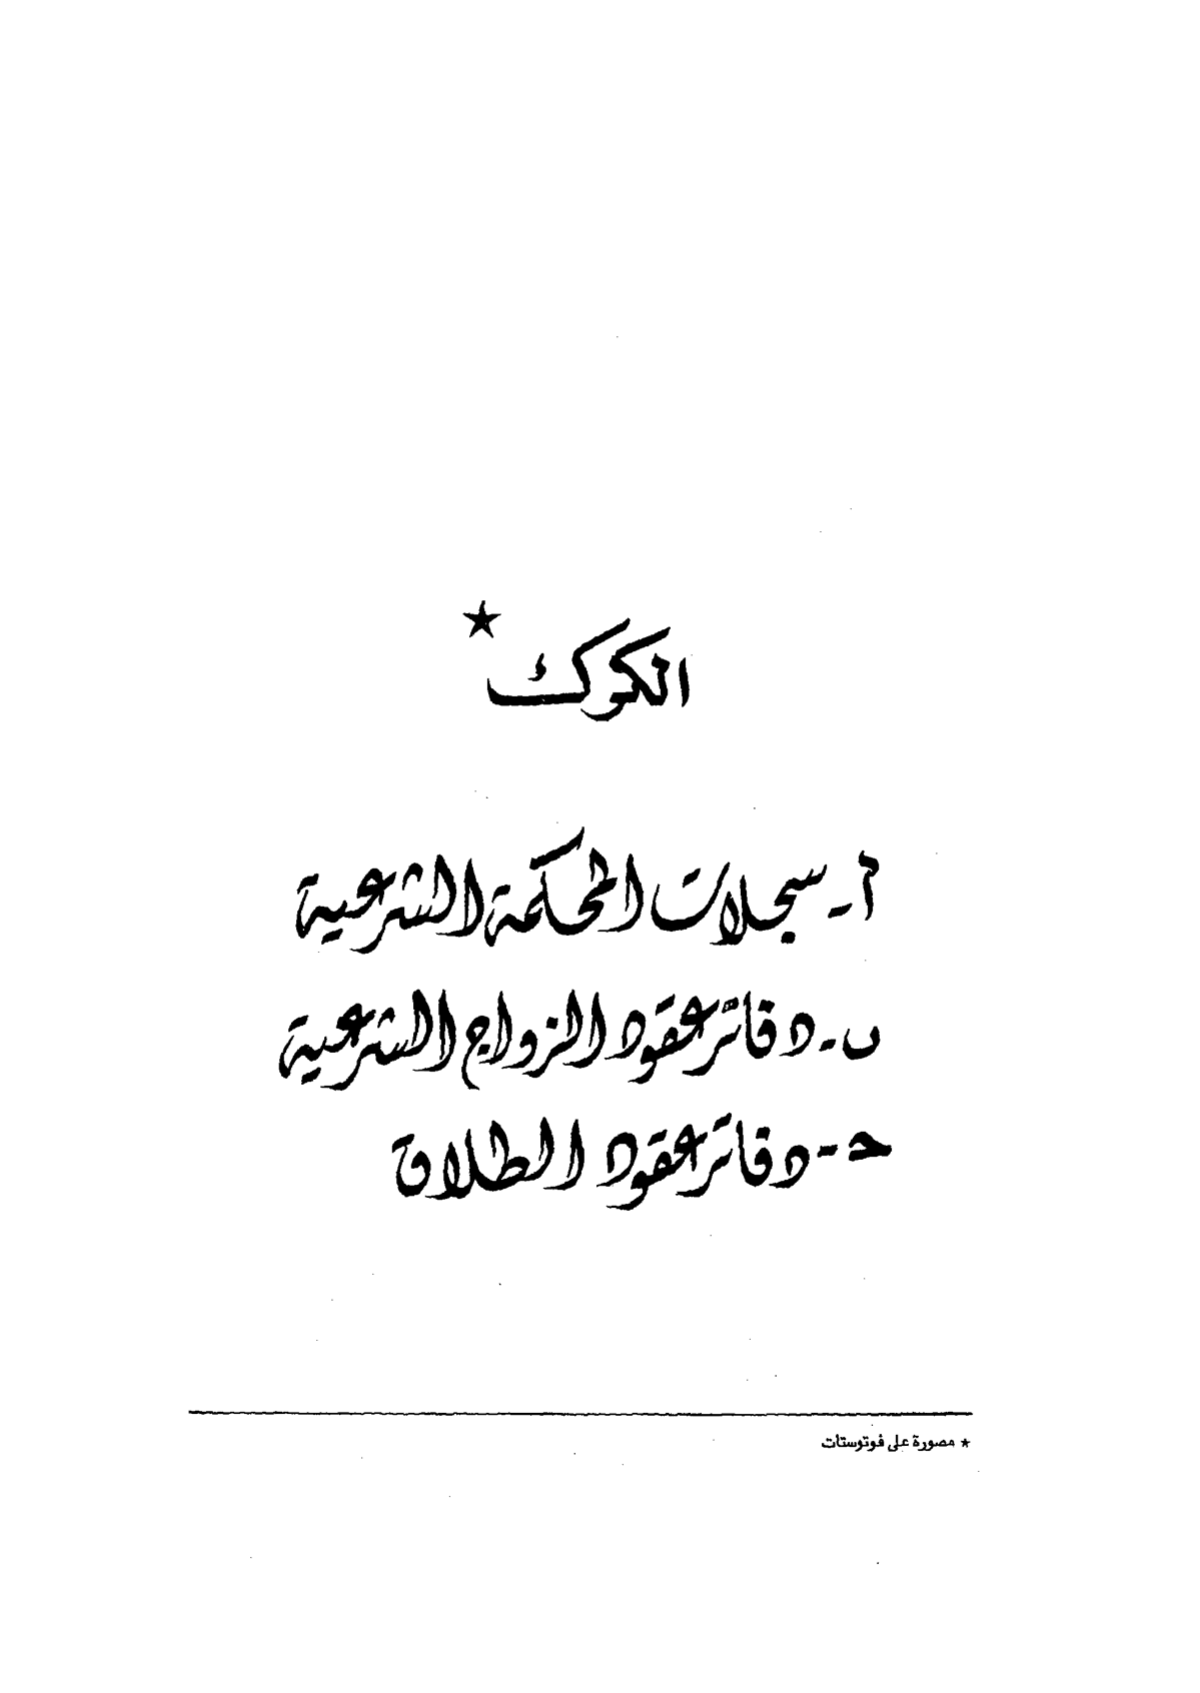 الكوك *
أ- سجلات المحكمة الشرعية
ب- دفاتر عقود الزواج الشرعية
ح- دفاتر عقود الطلاق
* مصورة على فوتوستات